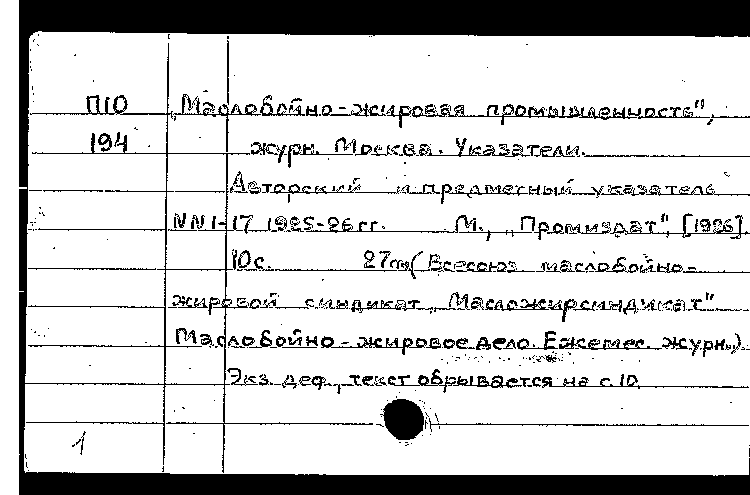 П10 „Маслобойно-жировая промышленность",
194 журн. Москва. Указатели.
Авторский и предметный указатель
NN1-17 1925-26гг. М., „Промиздат", [1926].
10с. 27см (Всесоюз. маслобойно-
жировой синдикат „Масложирсиндикат"
Маслобойно-жировое дело. Ежемес. журн.)
Экз. деф., текст обрывается на с.10.
1